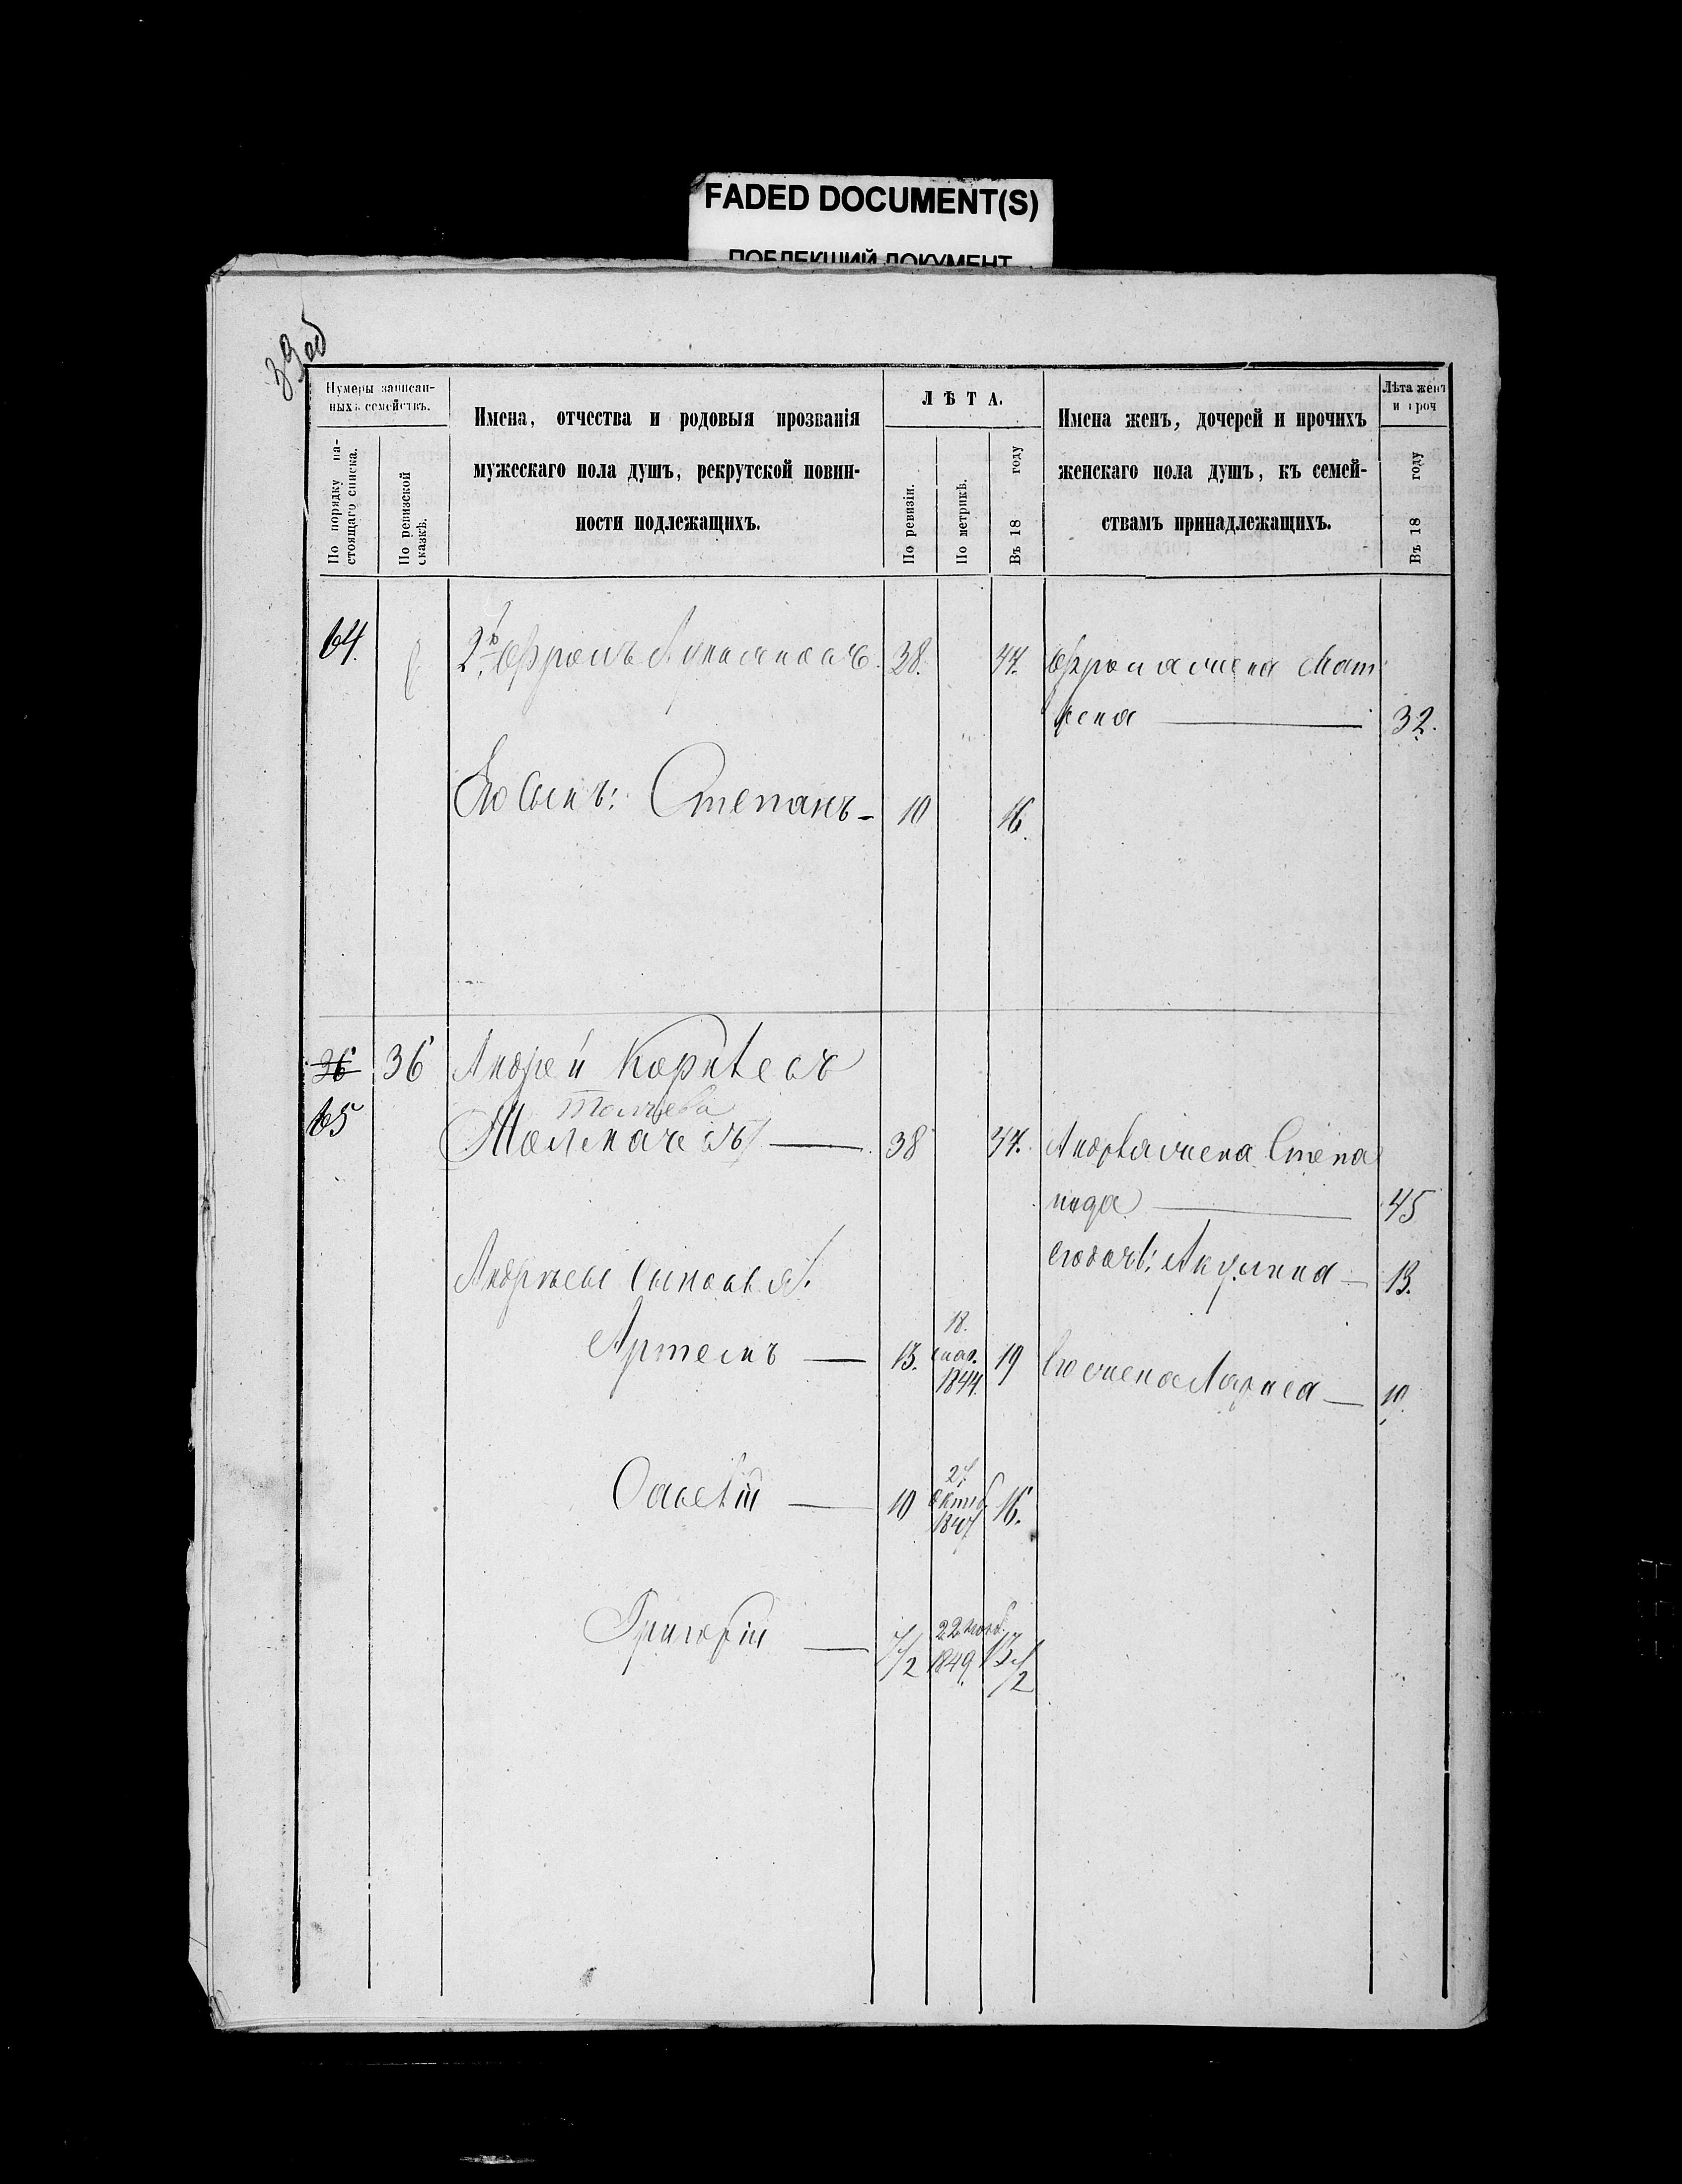 FADED DOCUMENT(S)
ПОБЛЕКШИЙ ДОКУМЕНТ
39об
Нумеры записан-
ныхъ семействъ.
По порядку на-
стоящаго списка.
По ревизской
сказкѣ.
Имена, отчества и родовыя прозванія
мужескаго пола душъ, рекрутской повин-
ности подлежащихъ.
ЛѢТА.
По ревизіи.
По метрикѣ.
Въ 18 году
Имена женъ, дочерей и прочихъ
женскаго пола душъ, къ семей-
ствамъ принадлежащихъ.
Лѣта женъ
и проч
Въ 18 году
64. 2й Ефромъ 38. 44. Ефрома жена Мат
рена 32.
Его Сынъ: Степанъ 10 16.
36 36 Андрей Корнѣевъ
65 Толмачева
Толмачевъ 38 44. Андрѣя жена Степа
нида 45
Андрѣевы Сыновья: его дочь: Акулина 13.
Артемъ 13. 18. 1844. 19 Его жена Лариса 19.
Савелій 10 27. Октяб 1847 16.
Григорій 7 1/2 22 нояб. 1849. 13 1/2